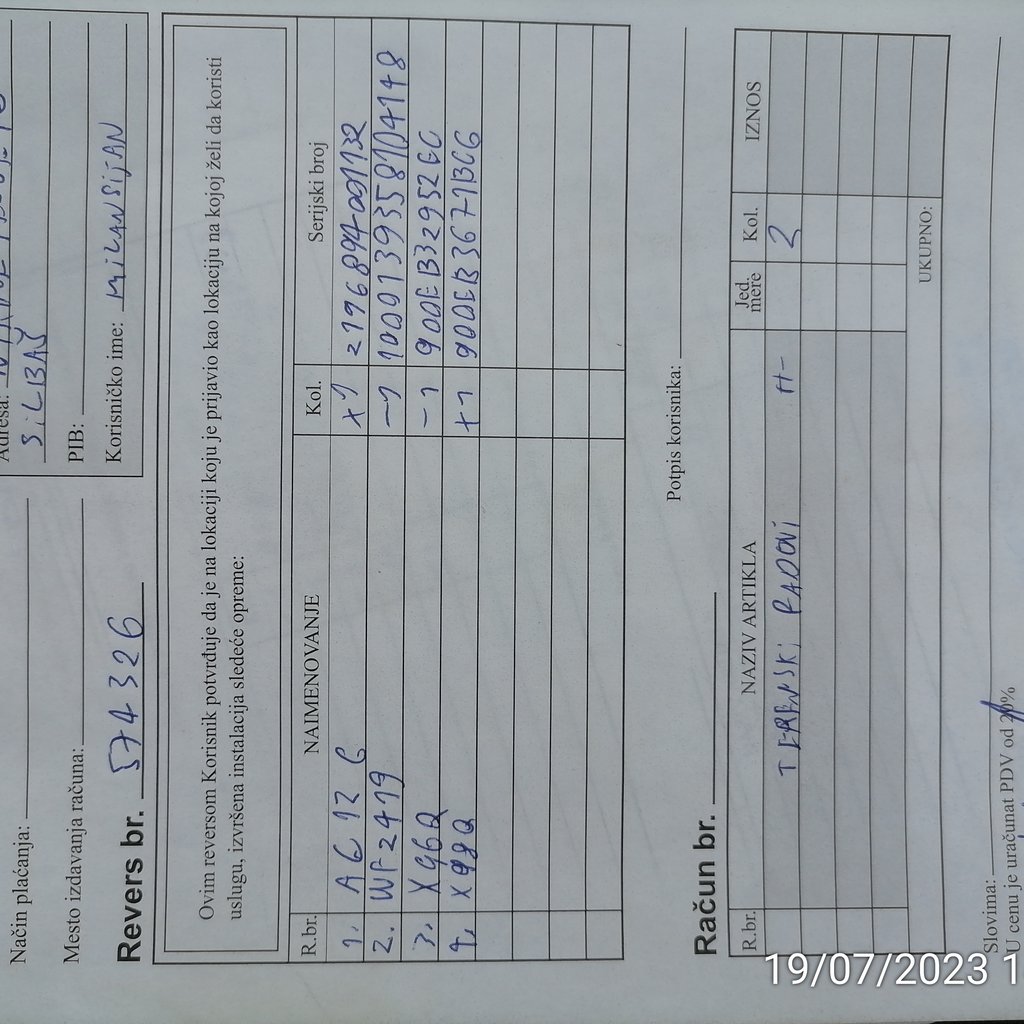 SiLBAŠ
Način plaćanja:
Mesto izdavanja računa:
PIB:
Korisničko ime: MiLANSijAN
Revers br. 574326
Ovim reversom Korisnik potvrđuje da je na lokaciji koju je prijavio kao lokaciju na kojoj želi da koristi
uslugu, izvršena instalacija sledeće opreme:
R.br. NAIMENOVANJE Kol. Serijski broj
1. AC12 G +1
2. WF2419 -1
3. X96Q -1 900EB32952EC
4. X99Q +1 900EB3671BCG
Potpis korisnika:
Račun br.
R.br. NAZIV ARTIKLA Jed. mere Kol. IZNOS
TERENSKi RADOVi H- 2
UKUPNO:
Slovima:
U cenu je uračunat PDV od 20%
19/07/2023 1